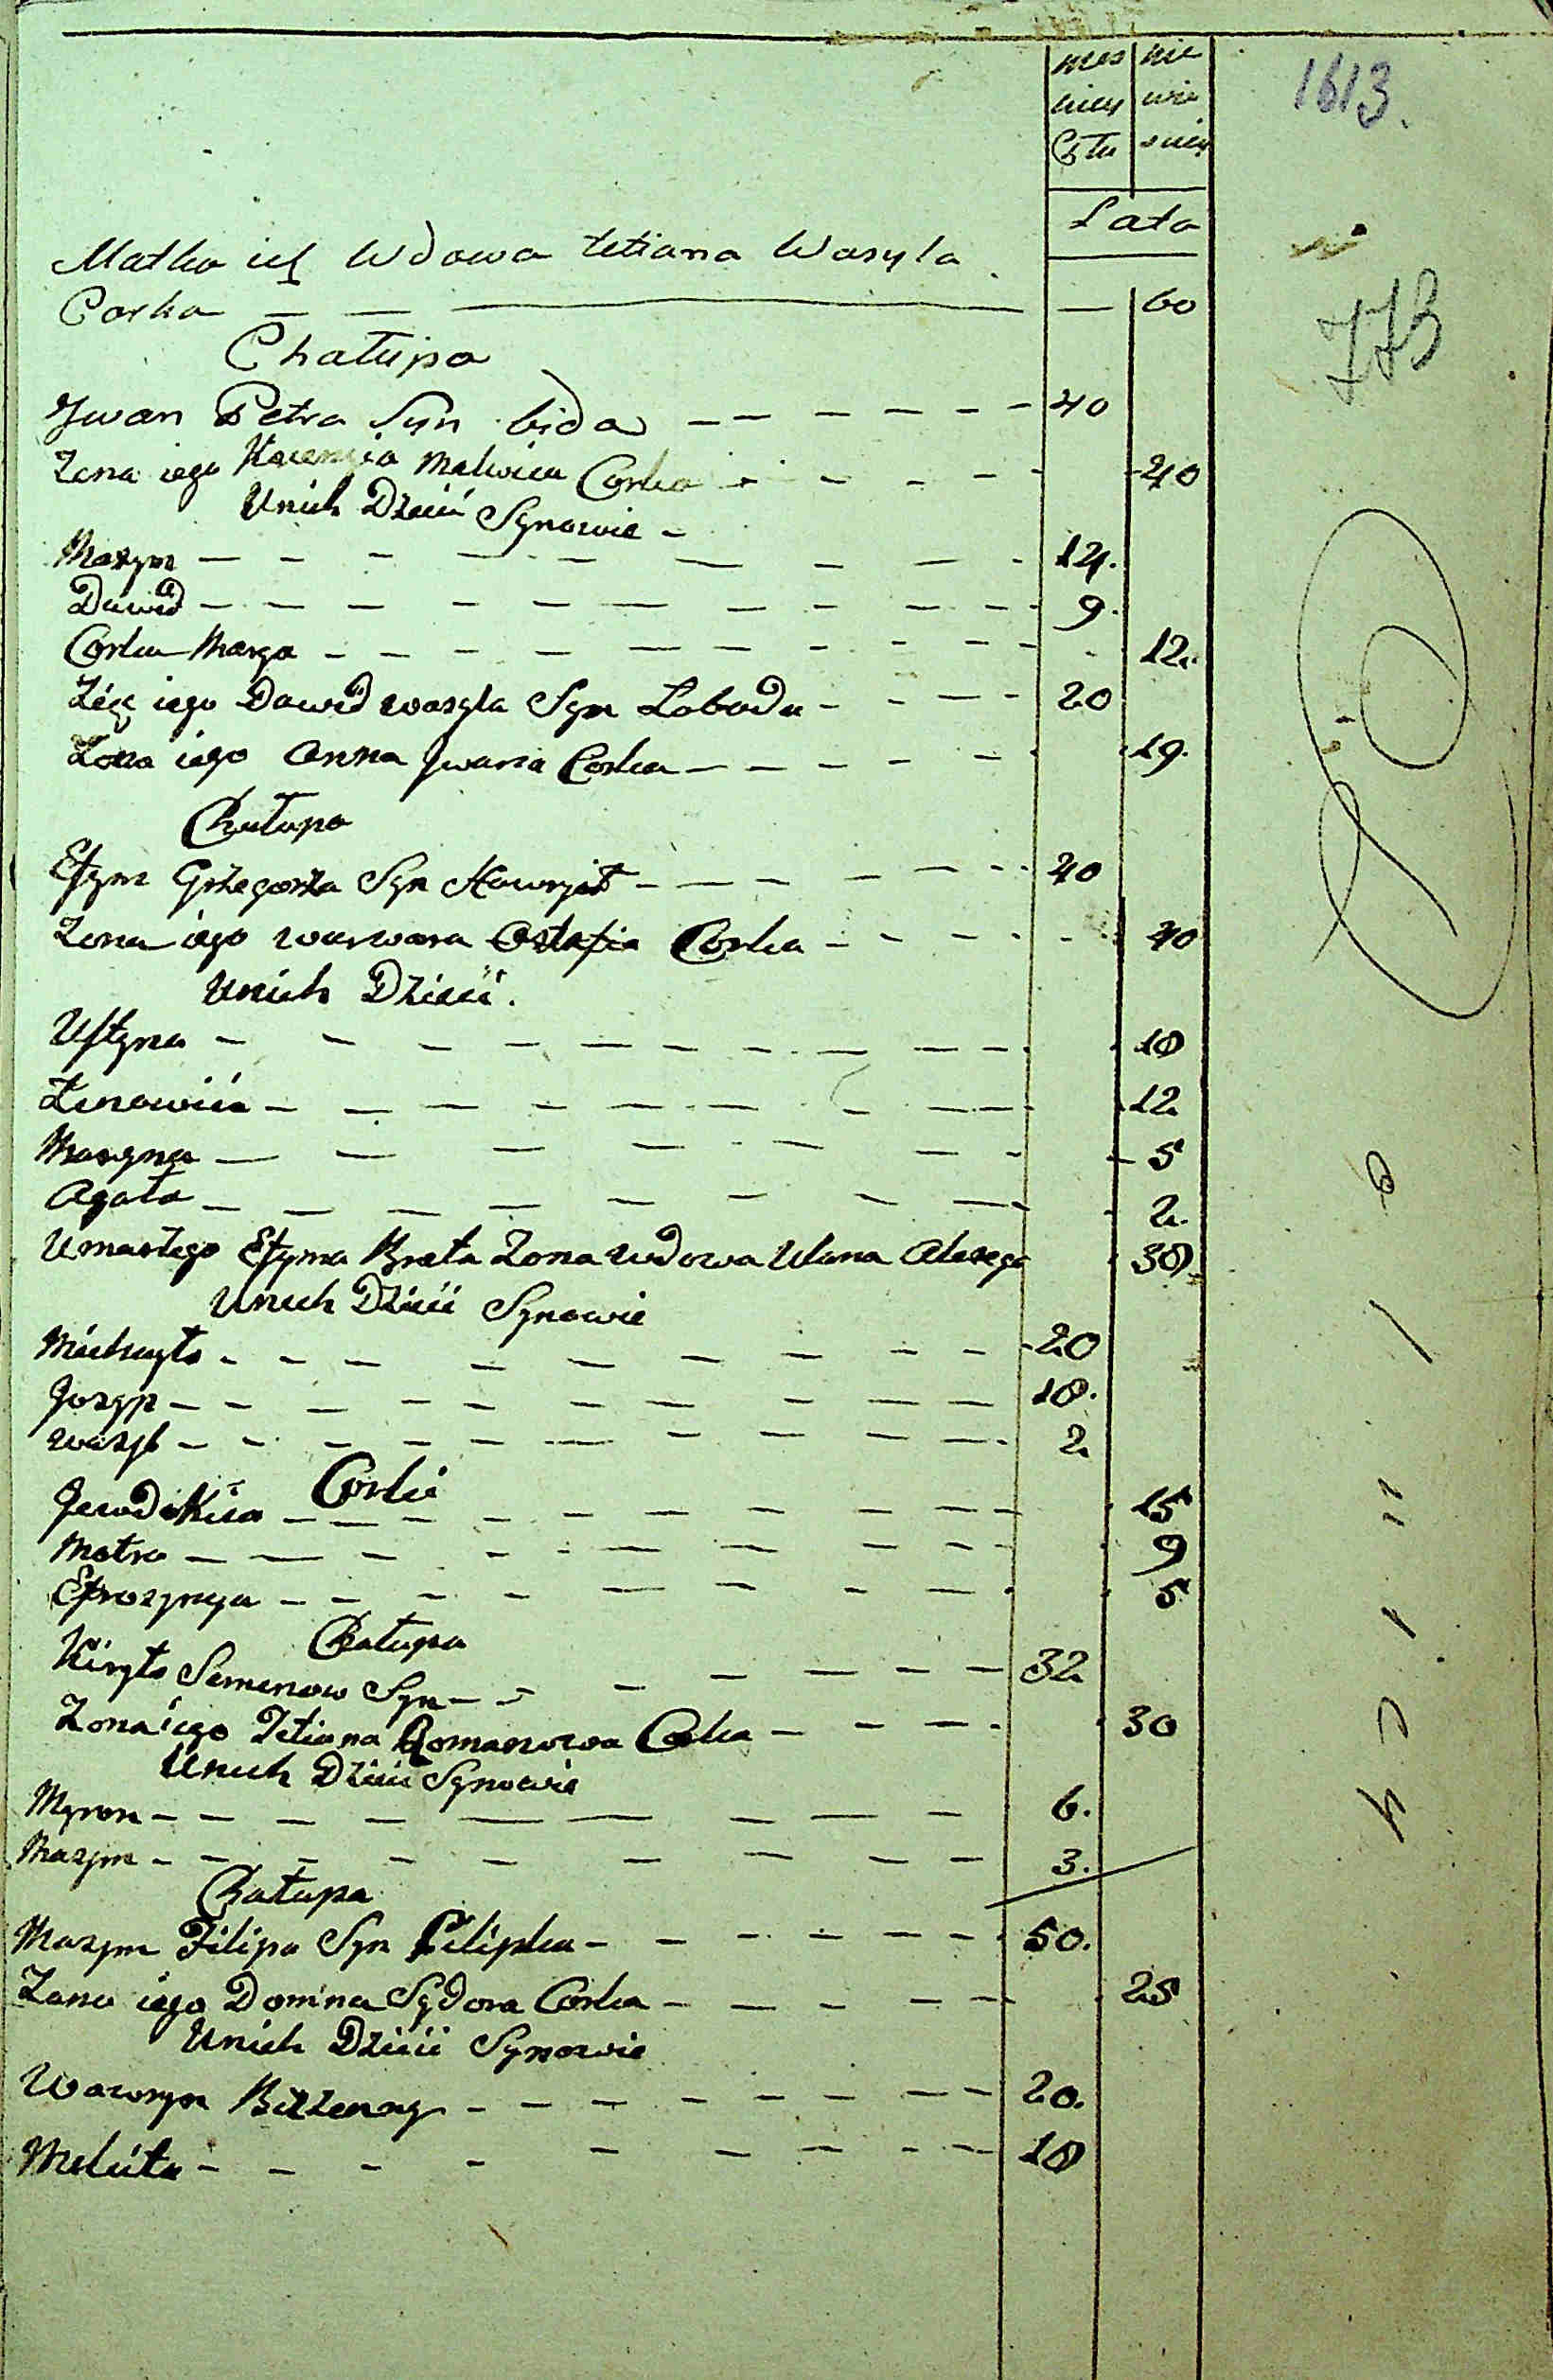 mes nie
czy wie
Czła sciey
Lata
1613.
773
Matka ich Wdowa tetiana Wasyla
Corka — — — — 60
Chałupa
Jwan Petra Syn bida — — — — — 40
Zona iego Matwieia Corka - - - - 40
Unich Dzieci Synowie -
Maxym — — — — — — — — 14.
Dawid — — — — — — — — 9.
Corka Marya — — — — — — — 12.
Zięć iego Dawid wasyla Syn Łoboda - - — - 20
Zona iego Anna Jwana Corka — — — - - 19.
Chałupa
Efym Grzegorza Syn — — — — - 40
Zona iego warwara Ostafia Corka — - - - 40
Unich Dzieci.
Ustyna — — — — — — — — 18
Zenowiia — — — — — — — — 12
Maryna — — — — — — — 5
Agata — — — — — — — — 2.
Umarłego Efyma Brata Zona wdowa Ulana Alexego 38
Unich Dzieci Synowie
Michayło - - — — — — — - - 20
Jozyp — - — — — — — — — 18.
wasyl — - - — — — — — — 2
Corki
Jewdokiia — — — — — — — — 15
Motra — — — - - — — — - 9
Efrozynya — — - - — — - — 5
Chałupa
Kiryło Semenow Syn — - — — — - — 32
Zona iego Tetiana Romanowa Corka — — — - 30
Unich Dzieci Synowie
Myron — — — — — — — — — 6.
Maxym — — — — — — — — — 3.
Chałupa
Maxym Filipa Syn Pilipka — — — - — - — 50.
Zona iego Domna Sydora Corka — — - — — 25
Unich Dzieci Synowie
Wawryn Bezzenny — - — — — — — — 20.
Mekita — — - - — — — - — 18